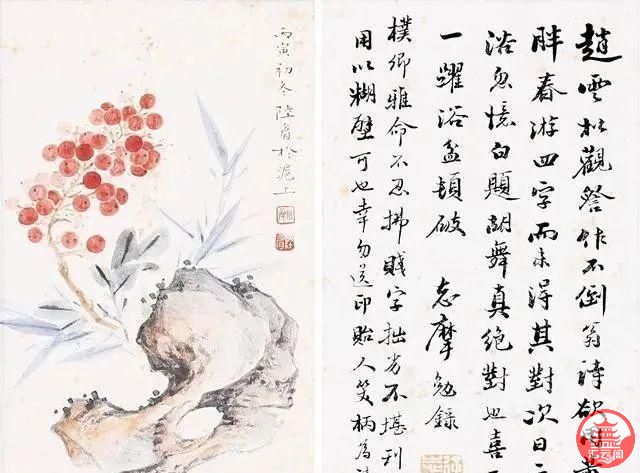 丙寅初冬陸眉於滬上
趙雲松觀詧作不倒翁詩欲用
胖春游四字而未得其對次日
浴忽憶白題胡舞真絕對也喜
一躍浴盆頓破 志摩勉錄
樸卿雅命不忍拂賤字拙劣不堪到
用以糊壁可也幸勿送印貽人笑柄為